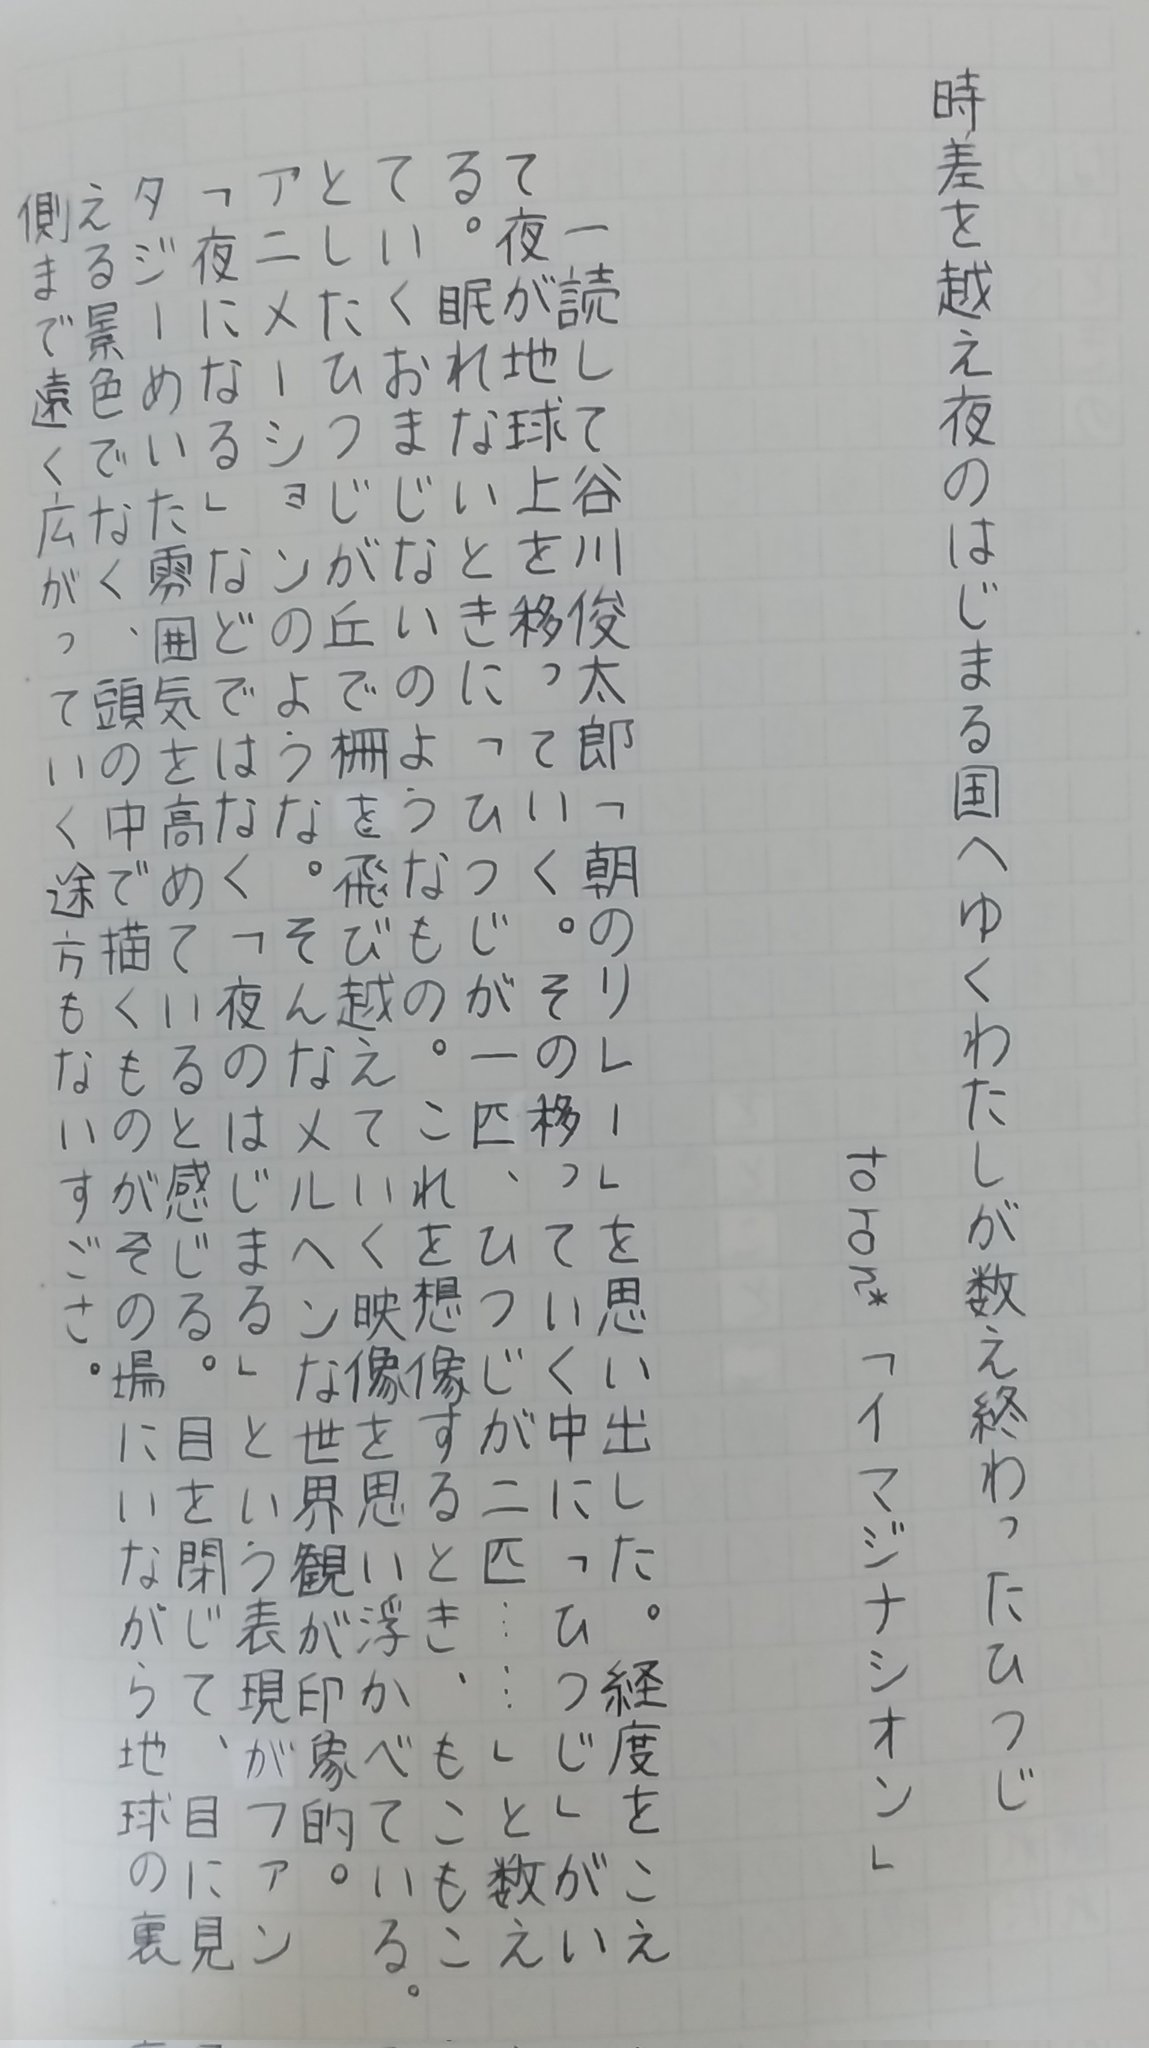 時差を越え夜のはじまる国へゆくわたしが数え終わったひつじ
toron*「イマジナシオン」
一読して谷川俊太郎「朝のリレー」を思い出した。経度をこえ
て夜が地球上を移っていく。その移っていく中に「ひつじ」がい
る。眠れないときに「ひつじが一匹、ひつじが二匹……」と数え
ていくおまじないのようなもの。これを想像するとき、もこもこ
としたひつじが丘で柵を飛び越えていく映像を思い浮かべている。
アニメーションのような。そんなメルヘンな世界観が印象的。
「夜になる」などではなく「夜のはじまる」という表現がファン
タジーめいた雰囲気を高めていると感じる。目を閉じて、目に見
える景色でなく、頭の中で描くものがその場にいながら地球の裏
側まで遠く広がっていく途方もないすごさ。